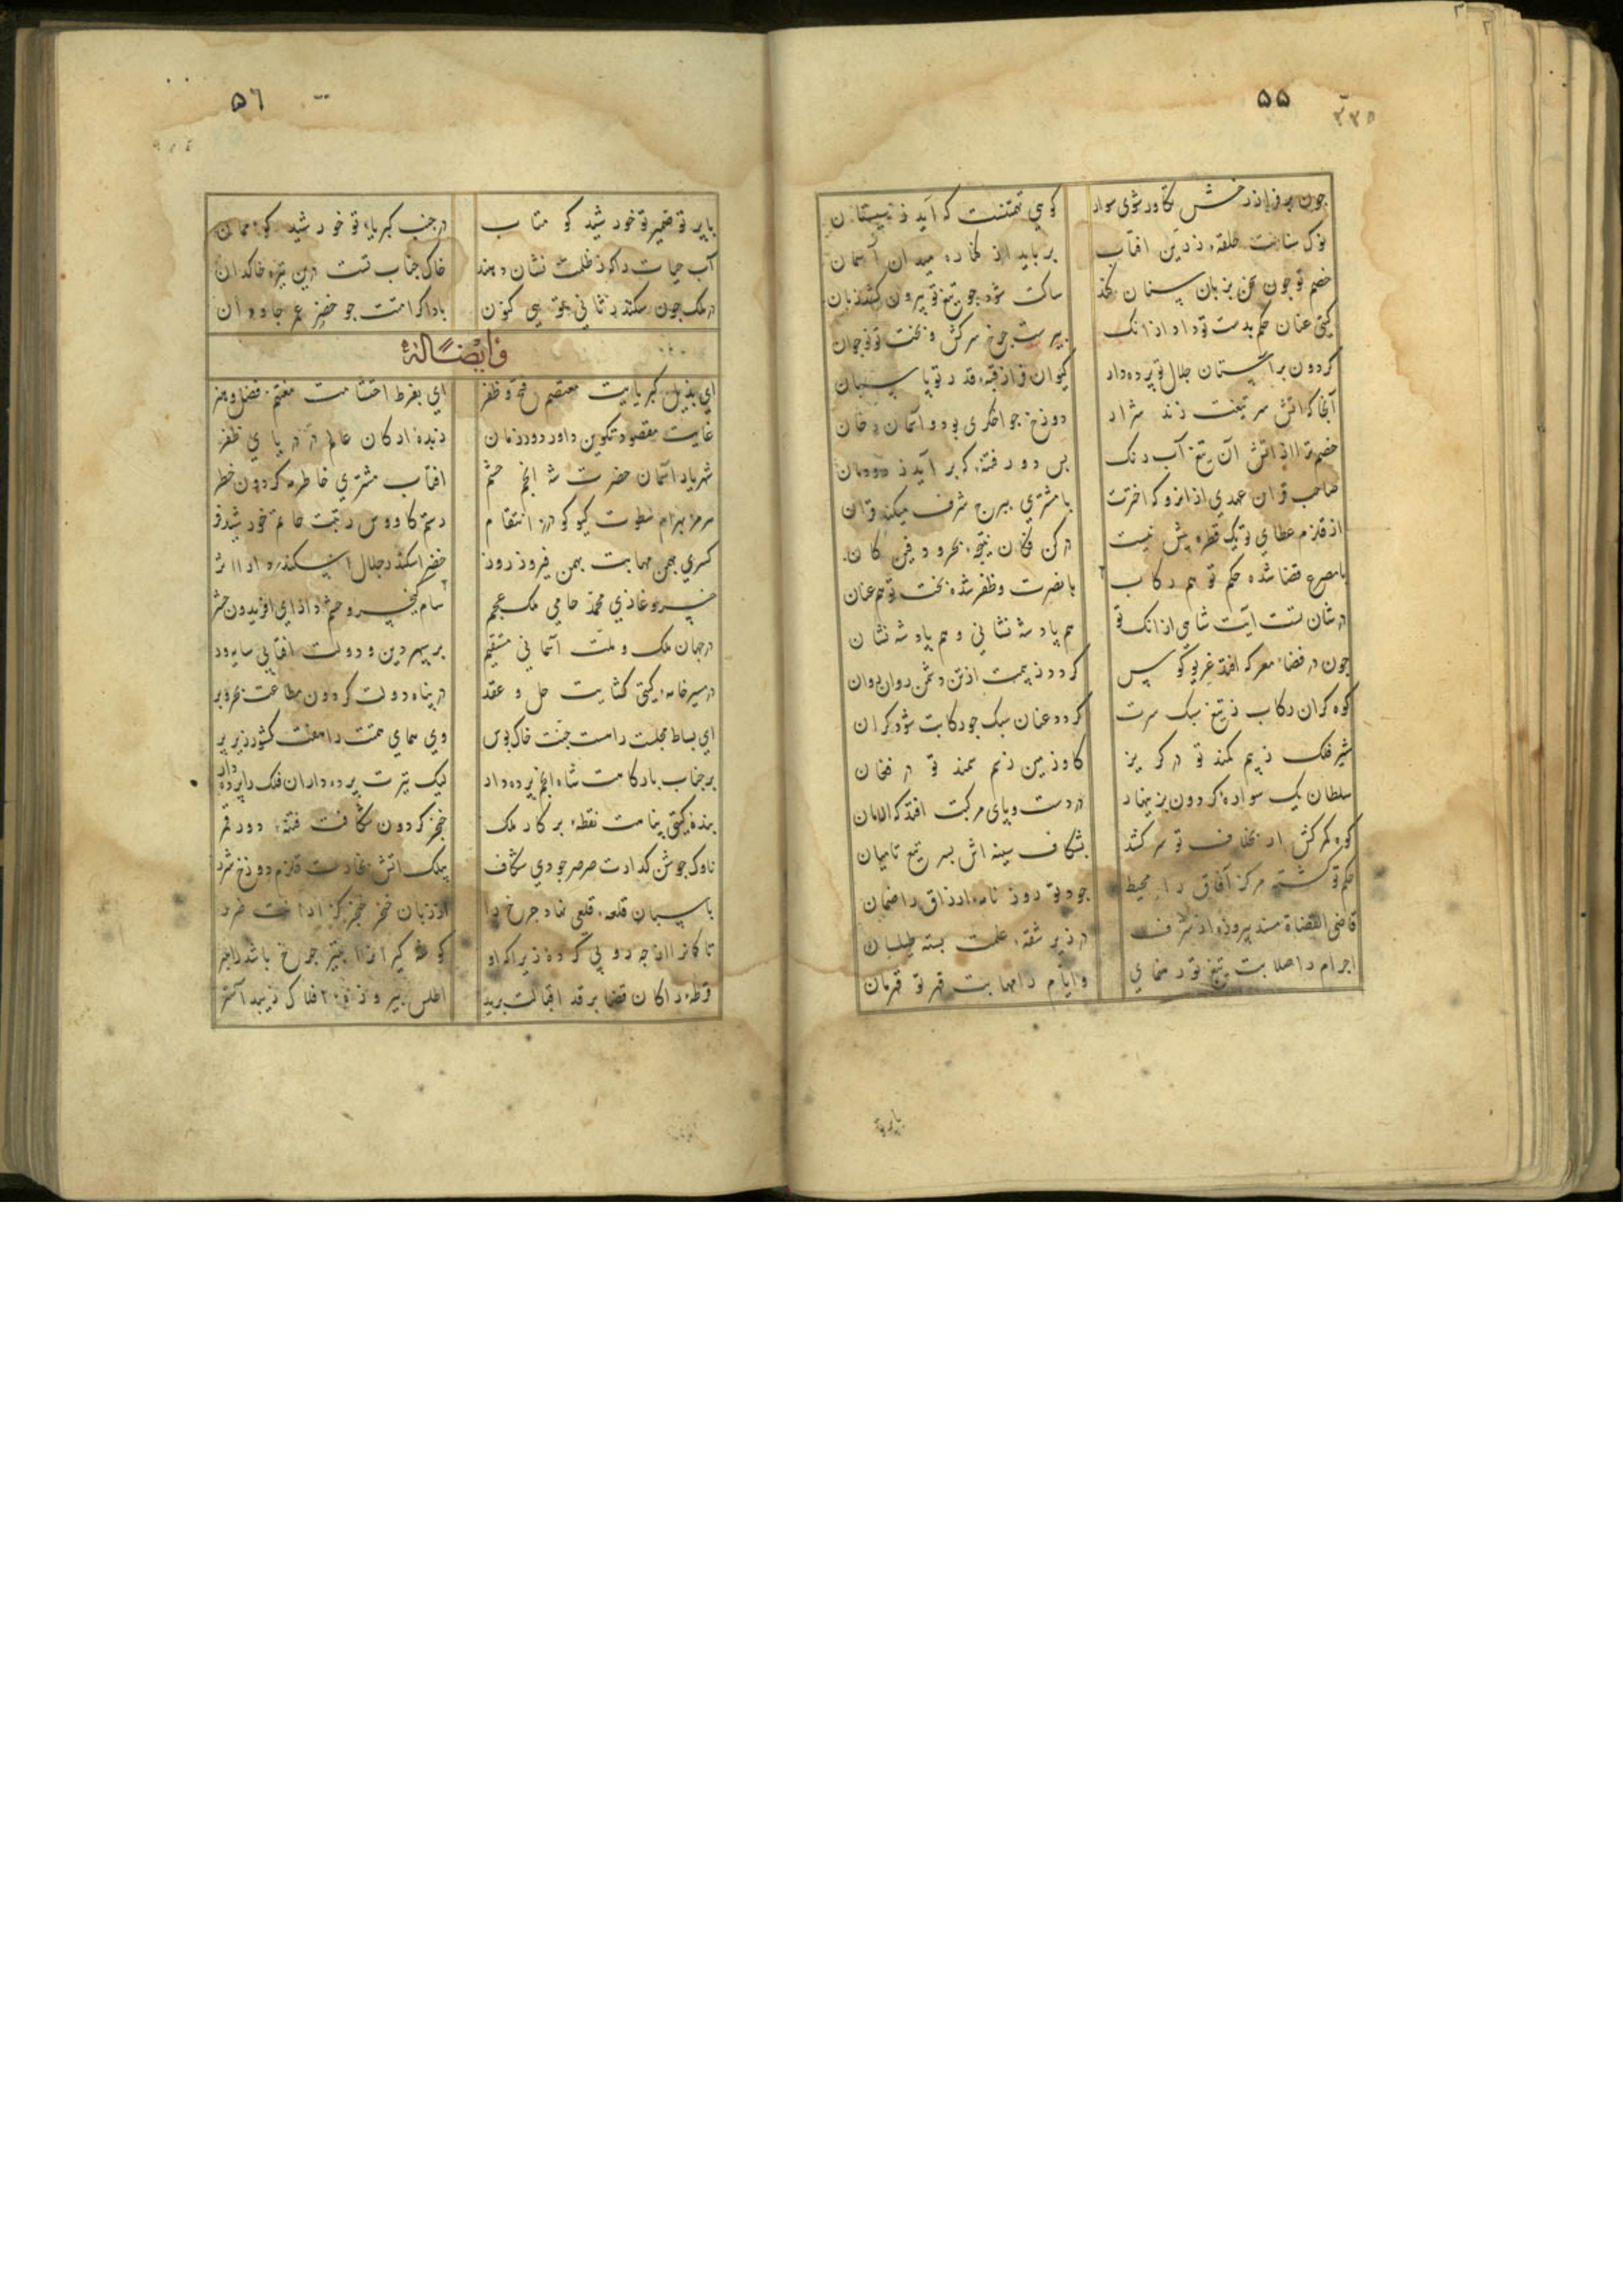 ۵۵
چون بر فراز رخش تکاور شوی سوار
کوهی تهمتنست که آید ز سیستان
نوک سنانت حلقه زرین افتاب
برباید از کناره میدان آسمان
خصم تو جون سخن بزبان سنان کند
ساکت شود جو تیغ تو بیرون کشد زبان
کیتی عنان حکم بدست تو داد از انک
بیرست جرخ سرکش و بخت تو نوجوان
کردون بر آستان جلال تو برده دار
کیوان فراز قبه قدر تو پاسبان
آنجا که اتش سر تیغت زند شرار
دوزخ جو اخکری بود و آسمان دخان
خصم ترا از اتش آن تیغ آب رنک
بس دود فتنه که بر آید ز دودمان
صاحب قران عهدی از انرو که اخترت
با مشتری ببرج شرف میکند قران
از قلزم عطای تو یک قطره بیش نیست
در کن فکان نتیجه بحر و دفین کان
با مسرع قضا شده حکم تو هم رکاب
با نصرت و ظفر شده بخت تو هم عنان
در شان تست آیت شاهی از انک تو
هم پادشه نشانی و هم پادشه نشان
جون در فضاء معرکه افتد غریو کوس
کردد ز بیمت از تن دشمن روان روان
کوه کران رکاب ز تیغ سبک سرت
کردد عنان سبک جو رکابت شود کران
شیر فلک ز بیم کمند تو در کریز
کاو زمین ز سم سمند تو در فغان
سلطان یک سواره کردون بزینهار
در دست و پای مرکبت افتد که الامان
کوه کمرکش ار بخلاف تو سر کشد
بشکاف سینه اش بسر تیغ تا میان
حکم تو کشته مرکز آفاق را محیط
جود تو روز نامه ارزاق را ضمان
قاضی القضاة مسند پیروزه از شرف
در زیر شقه علمت بسته طیلسان
اجرام را صلابت تیغ تو رهنمای
و ایام را مهابت قهر تو قهرمان
با بر تو
۵٦
با پرتو ضمیر تو خورشید کو متاب
در جنب کبریاء تو خورشید کو ممان
آب حیات را که ز ظلمت نشان دهند
خاک جناب تست درین تیره خاکدان
در ملک جون سکندر ثانی تویی کنون
بادا کرامتت جو خضر عمر جاودان
و ایضاً له
ای بذیل کبریایت معتصم فتح و ظفر
ای بفرط احتشامت مغتنم فضل و هنر
غایت مقصود تکوین داور دور زمان
زبده ارکان عالم در دریای ظفر
شهریار آسمان حضرت شه انجم حشم
افتاب مشتری خاطر مه کردون خطر
هرمز بهرام سطوت کیو کودرز انتقام
رستم کاووس رتبت حاتم خورشید فر
کسری بهمن مهابت بهمن فیروز روز
خضر اسکندر جلال اسکندر دارا اثر
خسرو غازی محمد حامی ملک عجم
سام کیخسرو حشم دارای افریدون حشر
در جهان ملک و ملت آسمانی مستقیم
بر سپهر دین و دولت افتابی سایه ور
در مسیر خامه کیتی کشایت حل و عقد
در پناه دولت کردون مطاعت بحر و بر
ای بساط مجلست راهست جنت خاک بوس
وی همای همتت را هفت کشور زیر پر
بر جناب بارکاهت شاه انجم برده دار
لیک تیرت پرده داران فلک را پرده در
بنده کیتی پناهت نقطه برکار ملک
خنجر کردون شکافت فتنه دور قمر
ناوک جوشن کذارت صرصر جودی شکاف
بیلک اتش نهادت قلزم دوزخ شرر